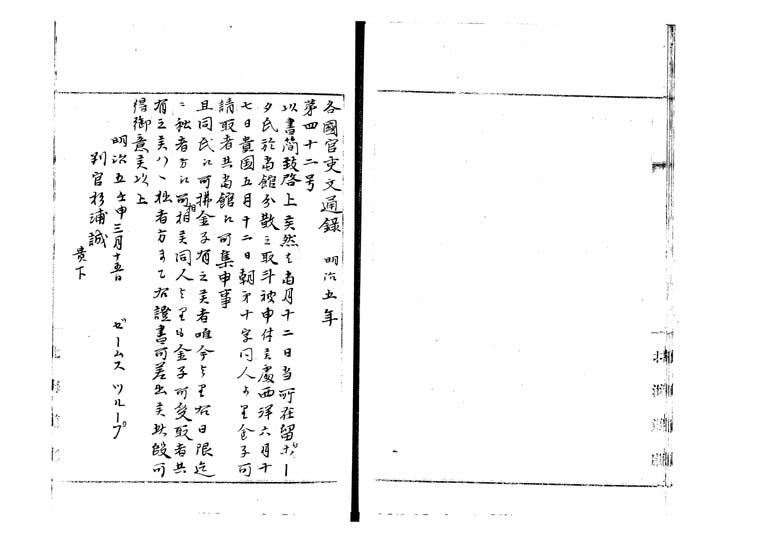 各國官吏文通錄　明治五年
第四十二号
以書簡致啓上候然者當月十二日当所在留ポー
タ氏於當館分散之取斗被申付候處西洋六月十
七日貴国五月十二日朝第十字同人ゟ里金子可
請取者共當館江可集申事
且同氏江可拂金子有之候者唯今ゟ里右日限迄
ニ拙者方江可相候同人ゟ里も金子可受取者共
有之候ハヽ拙者方まて右證書可差出候此段可
得御意候以上
明治五壬申三月十五日
ゼームス ツループ
判官杉浦誠
貴下